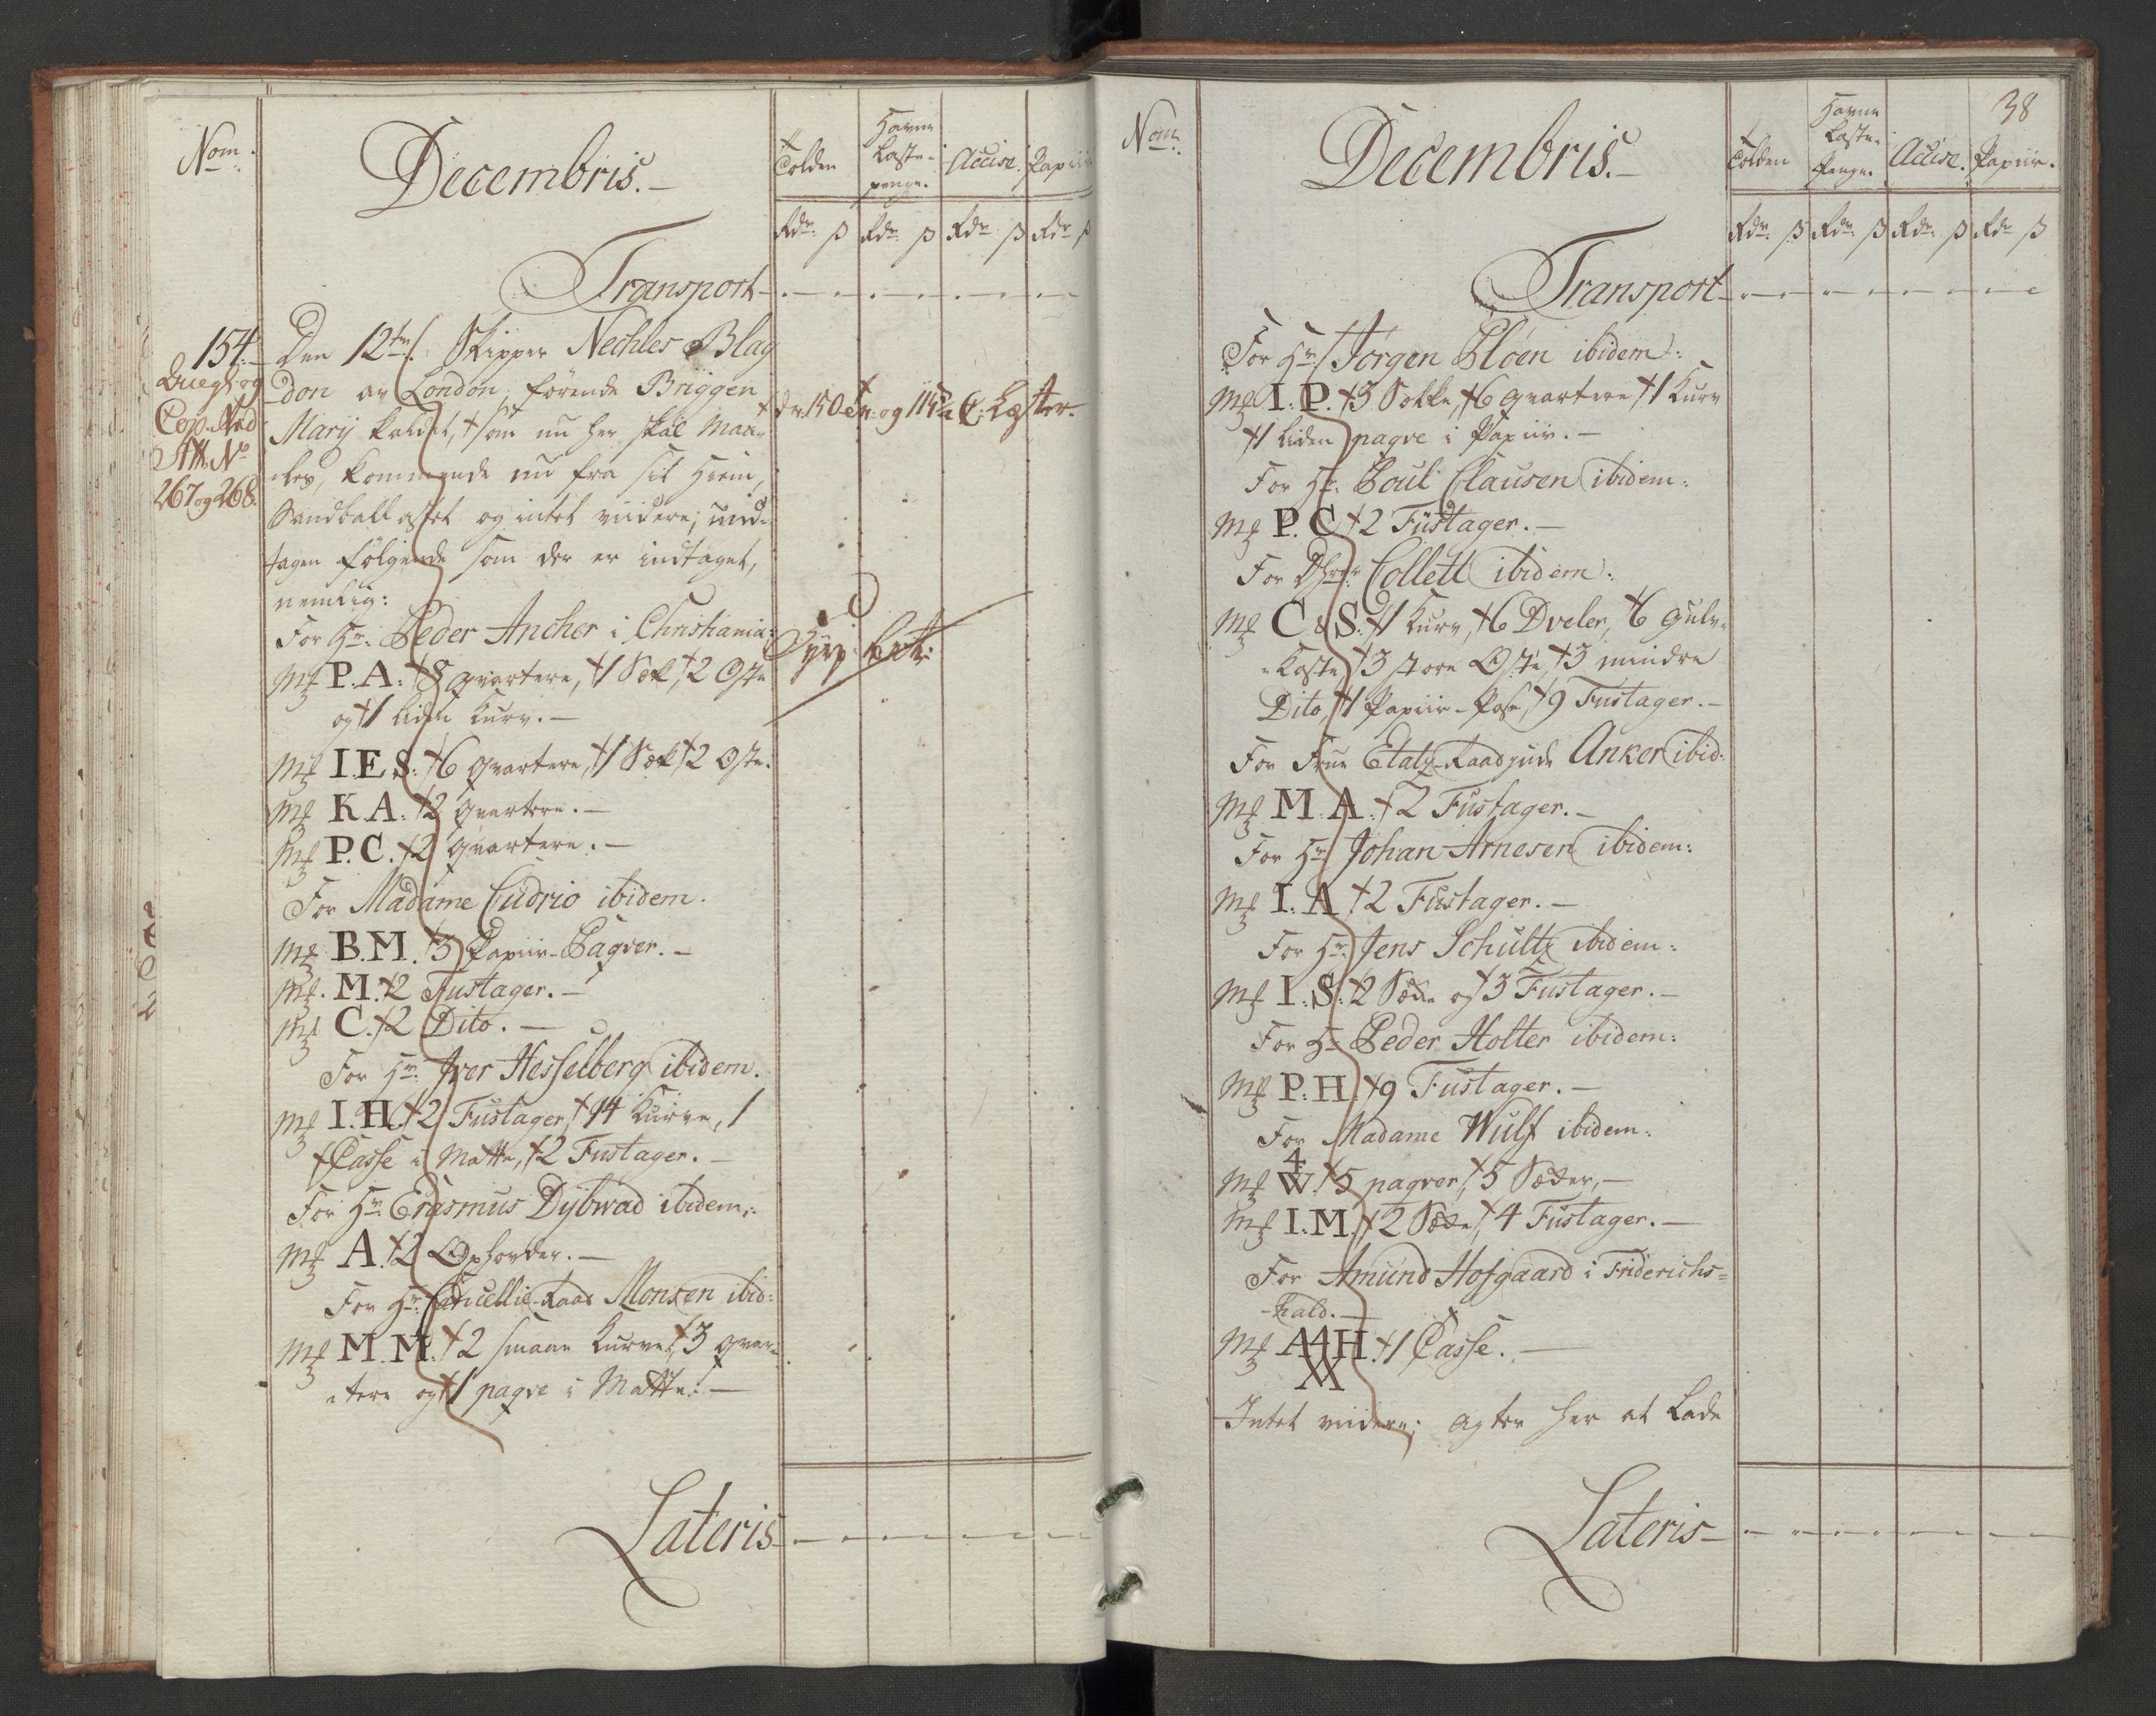 Nom.
Decembris.
Tolden
Havne
Laste-
penge.
Accise.
Papiir
Rdr. ß Rdr. ß Rdr. ß Rdr. ß
Transport
154.
og
Cop. Ned
Att. No
267 og 268.
Den 12te. Skipper Nechles Blag
don av London, förende Briggen
Mary kaldet, som nu her skal maa-
les, kommende nu fra sit Hiem,
Sandballastet og intet viidere, und-
tagen følgende som der er indtaget,
nemlig:
er 150 og 115 C. Læster.
For Hr. Peder Ancher i Christiania:
Mk P. A: 8 qvartere, 1 Sæk, 2 Oste
og 1 liden Kurv.
Mk I.E.S: 6 qvartere, 1 Sæk 2 Oste.
Mk K.A: 2 qvartere.
Mk P.C. 2 qvartere.
For Madame Cudrio ibidem.
Mk B.M. 3 Papiir-Paqver.
Mk. M. 2 Fustager.
Mk C. 2 Dito.
For Hr. Iver Hesselberg ibidem.
Mk I.H. 2 Fustager, 14 Kurve, 1
Casse i Matte, 2 Fustager.
For Hr. Erasmus Dybwad ibidem:
Mk A. 2 Oxhovder.
For Hr. Cancellie-Raad Monsen ibid:
Mk M.M: 2 smaae Kurve, 3 qvar-
tere og 1 paqve i Matte.
Lateris
Nom.
Decembris.
38
Tolden
Havne
Laste-
Penge.
Accise.
Papiir.
Rdr. ß Rdr. ß Rdr. ß Rdr ß
Transport
For Hr. Jörgen Plöen ibidem:
Mk I: P. 3 Sække, 6 qvartere 1 Kurv
1 liden paqve i Papiir.
For Hr. Poul Clausen ibidem:
Mk P. C. 2 Fustager.
For Dhrr. Collett ibidem:
Mk C & S: 1 Kurv, 6 Dveler, 6 gulv-
Koste 3 store Oste, 3 mindre
Dito, 1 Papiir-Pose, 9 Fustager.
For Frue Etatz-Raadinde Anker ibid:
Mk M: A: 2 Fustager.
For Hr. Johan Arnesen ibidem:
Mk I: A 2 Fustager.
For Hr. Jens Schultz ibidem:
Mk I: S: 2 Sække og 3 Fustager.
For Hr. Peder Holter ibidem:
Mk P: H. 9 Fustager.
For Madame Wulf ibidem:
4
Mk W. 5 paqver, 5
Mk I: M. 2 4 Fustager.
For Amund Hofgaard i Friderichs=
-hald.
Mk A4H. 1 Casse.
Intet viidere; agter her at Lade
Lateris